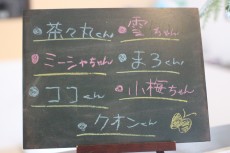 茶々丸くん 雪ちゃん
ミーシャちゃん まろくん
ココくん 小梅ちゃん
クオンくん